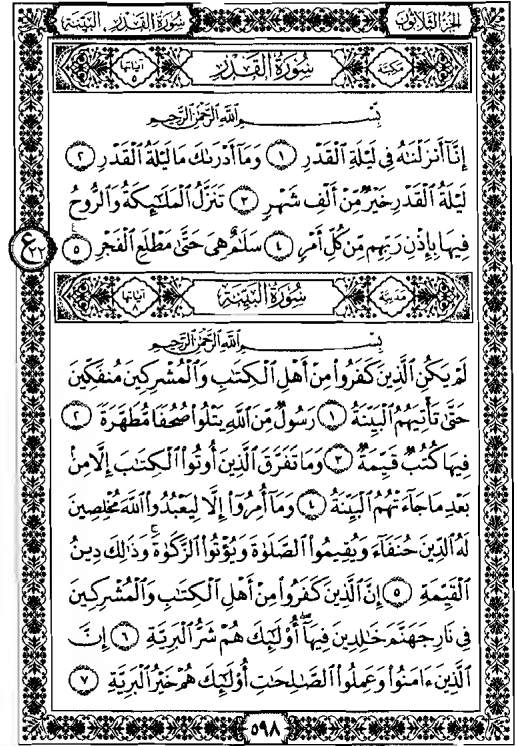 الجزء الثلاثون
سورة القدر . البينة
مكية
سُورَةُ القَدْرِ
آياتها ٥
بِسْمِ ٱللَّهِ ٱلرَّحْمَٰنِ ٱلرَّحِيمِ
إِنَّآ أَنزَلْنَٰهُ فِى لَيْلَةِ ٱلْقَدْرِ ١ وَمَآ أَدْرَىٰكَ مَا لَيْلَةُ ٱلْقَدْرِ ٢
لَيْلَةُ ٱلْقَدْرِ خَيْرٌ مِّنْ أَلْفِ شَهْرٍ ٣ تَنَزَّلُ ٱلْمَلَٰٓئِكَةُ وَٱلرُّوحُ
فِيهَا بِإِذْنِ رَبِّهِم مِّن كُلِّ أَمْرٍ ٤ سَلَٰمٌ هِىَ حَتَّىٰ مَطْلَعِ ٱلْفَجْرِ ٥
ع
مدنية
سُورَةُ البَيِّنَة
آياتها ٨
بِسْمِ ٱللَّهِ ٱلرَّحْمَٰنِ ٱلرَّحِيمِ
لَمْ يَكُنِ ٱلَّذِينَ كَفَرُوا۟ مِنْ أَهْلِ ٱلْكِتَٰبِ وَٱلْمُشْرِكِينَ مُنفَكِّينَ
حَتَّىٰ تَأْتِيَهُمُ ٱلْبَيِّنَةُ ١ رَسُولٌ مِّنَ ٱللَّهِ يَتْلُوا۟ صُحُفًا مُّطَهَّرَةً ٢
فِيهَا كُتُبٌ قَيِّمَةٌ ٣ وَمَا تَفَرَّقَ ٱلَّذِينَ أُوتُوا۟ ٱلْكِتَٰبَ إِلَّا مِنۢ
بَعْدِ مَا جَآءَتْهُمُ ٱلْبَيِّنَةُ ٤ وَمَآ أُمِرُوٓا۟ إِلَّا لِيَعْبُدُوا۟ ٱللَّهَ مُخْلِصِينَ
لَهُ ٱلدِّينَ حُنَفَآءَ وَيُقِيمُوا۟ ٱلصَّلَوٰةَ وَيُؤْتُوا۟ ٱلزَّكَوٰةَ ۚ وَذَٰلِكَ دِينُ
ٱلْقَيِّمَةِ ٥ إِنَّ ٱلَّذِينَ كَفَرُوا۟ مِنْ أَهْلِ ٱلْكِتَٰبِ وَٱلْمُشْرِكِينَ
فِى نَارِ جَهَنَّمَ خَٰلِدِينَ فِيهَآ ۚ أُو۟لَٰٓئِكَ هُمْ شَرُّ ٱلْبَرِيَّةِ ٦ إِنَّ
ٱلَّذِينَ ءَامَنُوا۟ وَعَمِلُوا۟ ٱلصَّٰلِحَٰتِ أُو۟لَٰٓئِكَ هُمْ خَيْرُ ٱلْبَرِيَّةِ ٧
٥٩٨